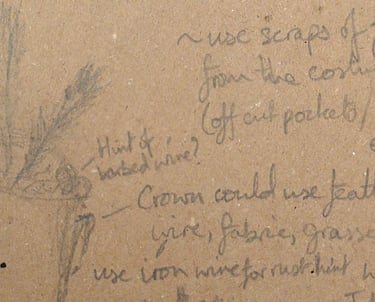 ~use scraps of
from the
(off cut pockets/
Hint of
barbed wire?
Crown could use feat
wire, fabric, grasse
use iron wire for rust hint w